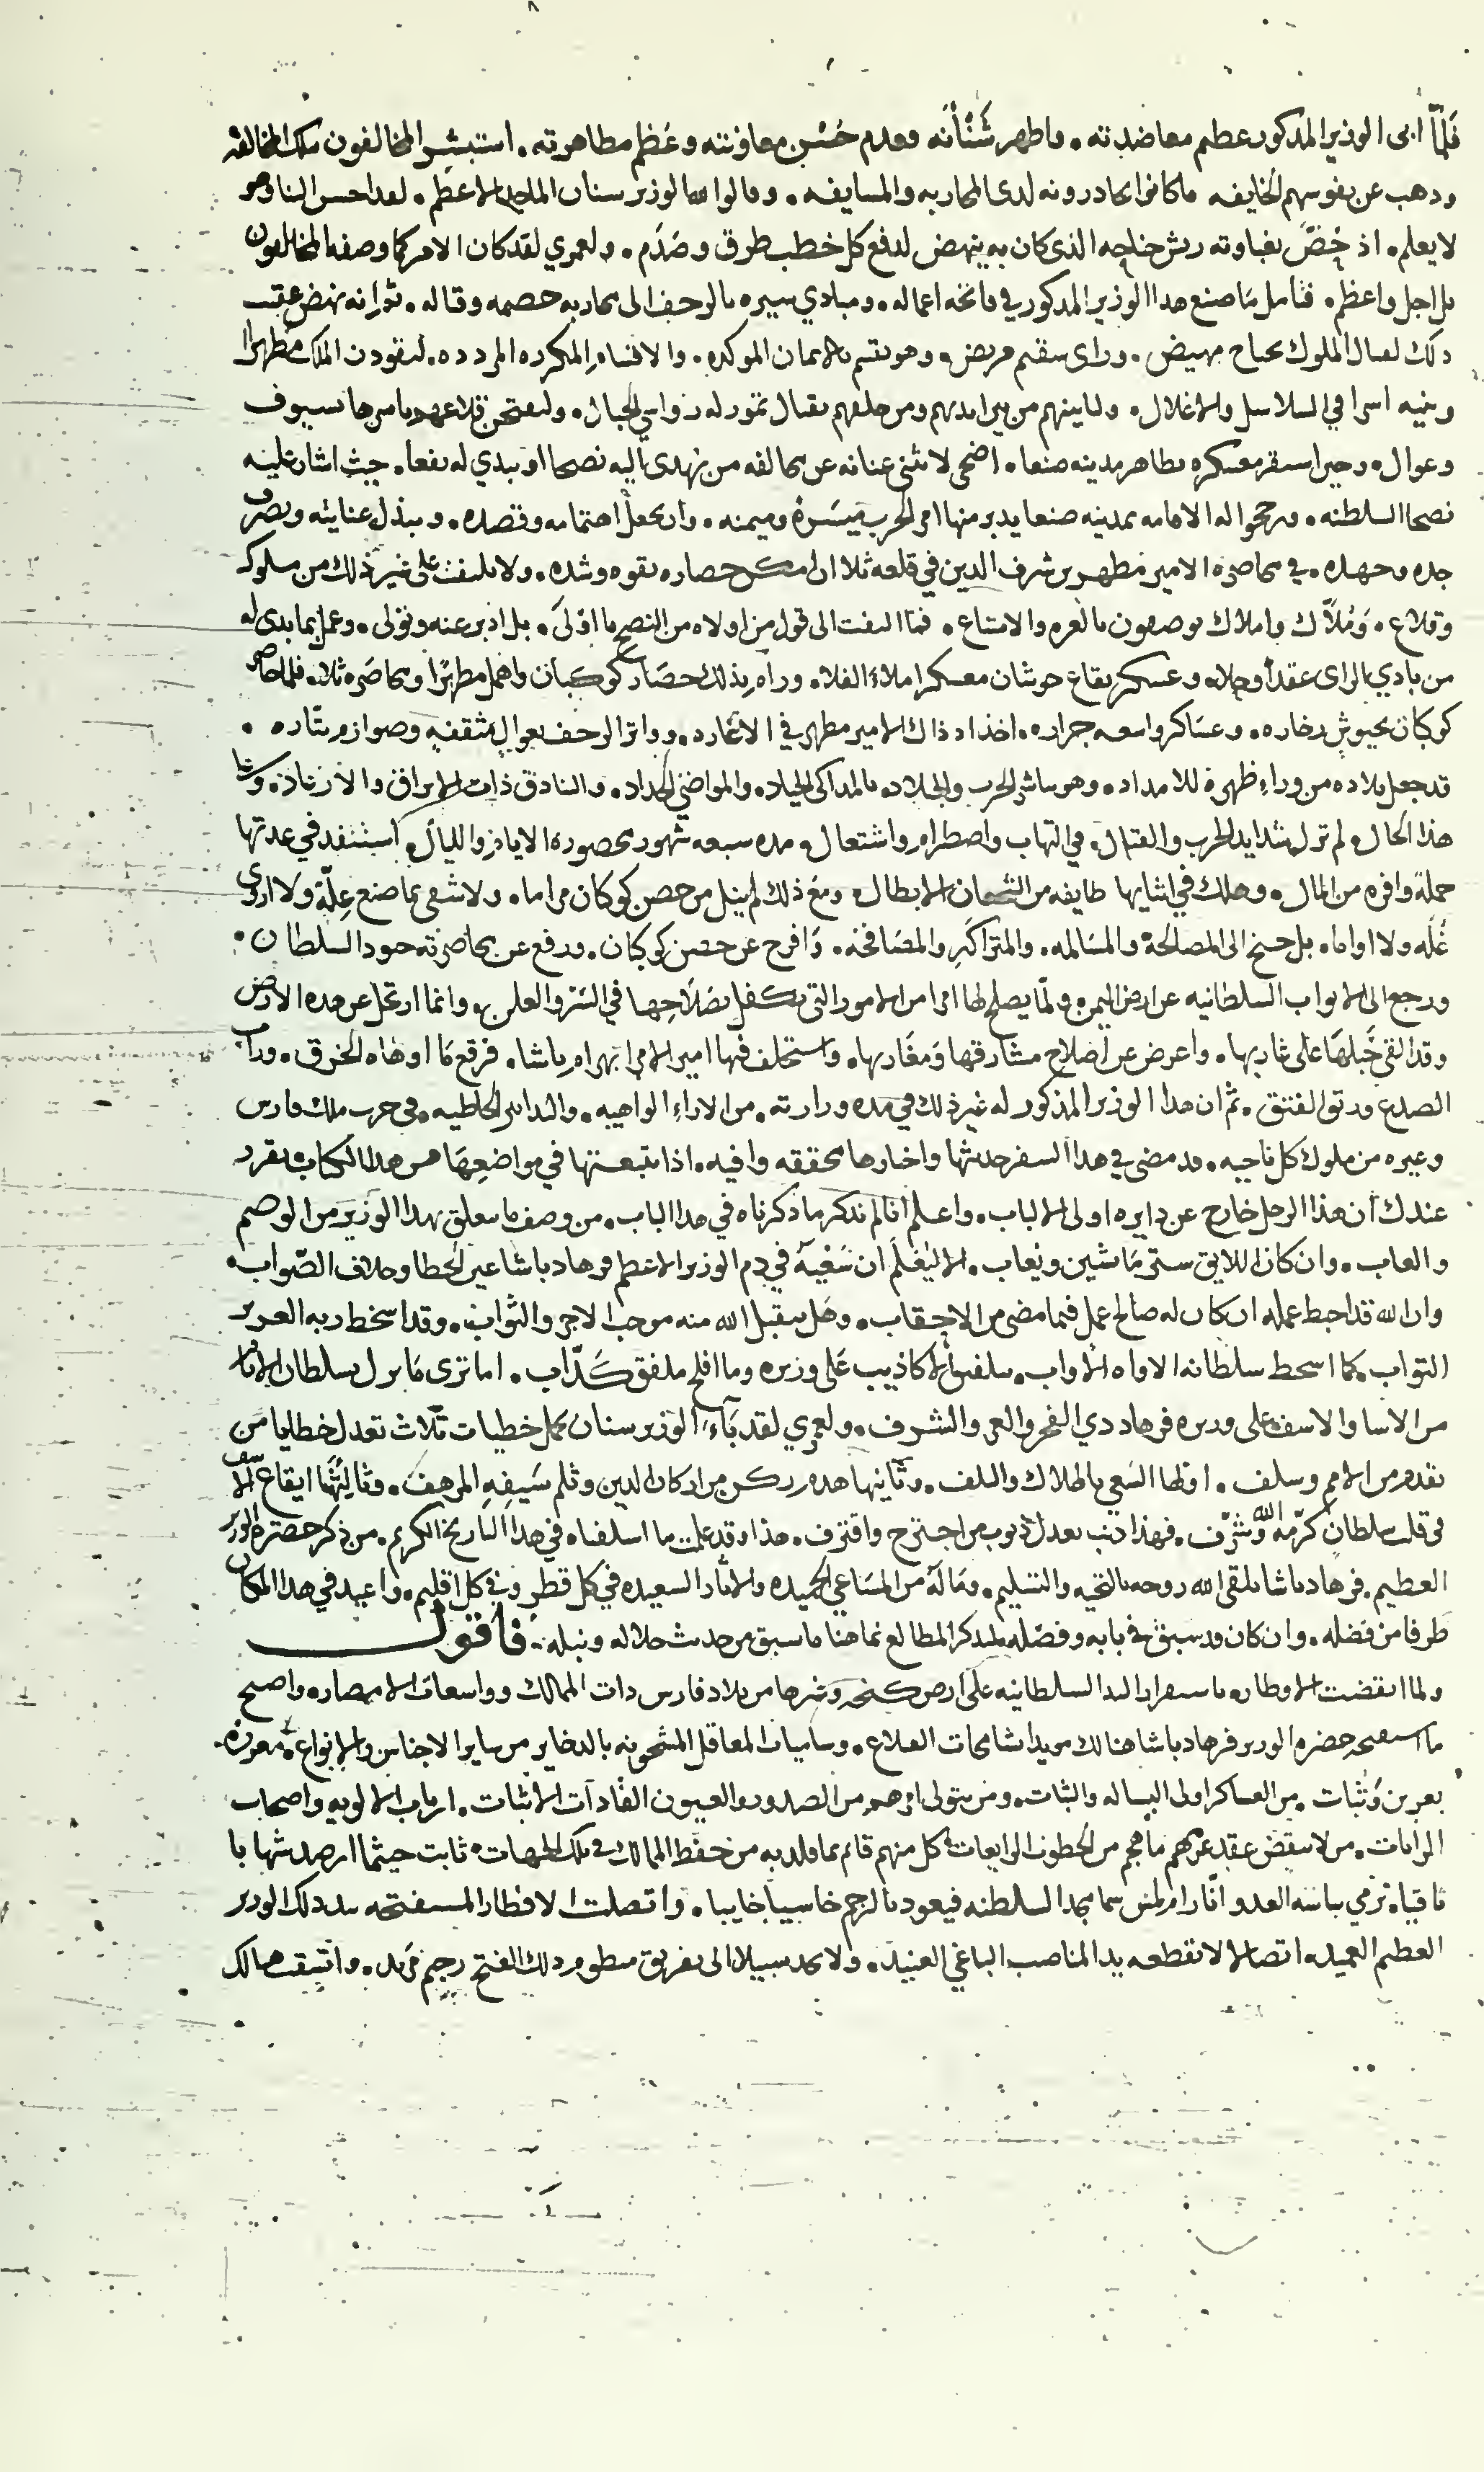 فَلَمّا ابى الوزير المذكور عظم معاضدته . واظهر شَنْأنَه وعدم حُسْن معاونته وعُظم مظاهرته . استبشر المخالفون بتلك المخالفه
ودهب عن نفوسهم الخايفه ما كانوا يحاذرونه لدى المحاربه والمسايفه . وقالوا اما لوزير سنان الاعظم . لقد احسن الينا وهو
لا يعلم . اذ حُصَّ بغباوته ريش جناحه الذي كان به ينهض لدفع كل خطب طرق وصَدَم . ولعمري لقد كان الامر كما وصفه المخالفون
بل اجل واعظم . فتامل مَا صنع هدا الوزير المدكور في فاتحة اعماله . ومبادي سيره بالزحف الى محاربه خصمه وقتاله . ثم انه نهض عقيب
دلك لقتال الملوك بجناح مهيض . وراى سقيم مريض . وهو يقسم بالايمان الموكده . والاقسام المكرره المردده . ليقودن الملك مطهرا
وبنيه اسرا في السلاسل والاغلال . ولياتينهم من بين ايديهم ومن خلفهم بقتال تمور له رواسي الجبال . وليفتحن قلاعهم باسرها بسيوف
وعوال . وحين استقر معسكره بظاهر مدينه صنعا . اضحى لا يثني عنانه عن مخالفه من يهدى اليه نصحا او يبدي له نفعا . حيث اشار عليه
نصحا السلطنه . ورجحوا له الاقامه بمدينه صنعا يدبر منها امر الحرب ميسرة وميمنه . وان يجعل اهتمامه وقصده . ويبذل عنايته ويصرف
جده وجهده . في محاصرة الامير مطهر بن شرف الدين في قلعه ثلا ان امكن حصاره بقوه وشده . ولا يلتفت الى غير ذلك من ملوك
وقلاع . وَمُلّاك واملاك يوصفون بالعزم والامتناع . فما التفت الى قول من اولاه من النصح ما اوْلىَ . بل ادبر عنه وتولى . وعمل بما بدى له
من بادي الراى عقدا وحلا . وعسكر بقاع حوشان معسكرا ملاء الفلا . ورام بذلك حصار كوكبان واهمل مطهرًا ومحاصَره ثلا . فلما حاصر
كوكبان بجيوش زخاره . وعساكر واسعه جراره . اخذ اذ ذاك الامير مطهر في الاغاره . وواتر الزحف بعوالٍ مثقفه وصوارم بتّاره .
قد جعل بلاده من وراء ظهره للامداد . وهو يباشر الحرب والجلاد . بالمداكى الجياد . والمواضي الحداد . والبنادق ذات الابراق والارعاد . و
هذا الحال . ولم تزل شدايد الحرب والقتال . في التهاب واضطرام واشتعال . مده سبعه شهور محصورة الايام والليال . استنفد في عدتها
جملة وافره من المال . وهلك في اثنايها طايفه من الشجعان الابطال . ومع ذلك لم ينل من حصن كوكبان مراما . ولا شفى بما صنع عِلّة ولا اروى
غُلّه ولا اواما . بل جنح الى المصالحة والمسالمه . والمصَافحَه . وَافرج عن حصن كوكبان . ودفع عن محاصرته جنود السلطان .
ورجع الى الابواب السلطانيه عن ارض اليمن . ولَمّا يصلح لها امرا من الامور التي تكفل بصَلَاحِهَا في السّر والعلن . وانما ارتحل عن هده الارض
وقد القى حَبْلهَا على غاربها . واعرض عن اصلاح مشارقها وَمغَاربها . واستخلف فيها امير الامرا بهرام باشا . فرقع مَا اوهاه الخرق . وراب
الصدع ورتق الفتق . ثم ان هدا الوزير المذكور له غير ذلك في مده وزارته . من الاراء الواهيه . والتدابير الخاطيه . في حرب ملك فارس
وغيره من ملوك كل ناحيه . قد مضى في هدا السفر حديثها واخبارها محققه وافيه . اذا تتبعتها في مواضعِهَا من هدا الكتاب تقرر
عندك أن هذا الرجل خارج عن دايره اولى الالباب . واعلم انا لم نذكر ما ذكرناه في هدا الباب . من وصف ما يتعلق بهدا الوزير من الوصم
والعاب . وان كان اللايق ستر مَا يشين ويُعاب . الا ليُعْلَم ان سَعْيهَ في دم الوزير الاعظم فرهاد باشا عين الخطا وخلاف الصّواب .
وان الله قد احبط عمله ان كان له صالح عمل فيما مضى من الاحقاب . وهل يتقبل الله منه موجب الاجر والثواب . وقد اسخط ربه العزيز
التواب . كما اسخط سلطانه الاواه الاواب . بتلفيق الاكاذيب عَلى وزيره وما افلح ملفق كَذّاب . اما ترى مَا نزل بسلطان الانام
من الاسا والاسف على وزيره فرهاد ذي الفخر والعز والشرف . ولعمري لقد بَآءَ الوزير سنان بحمل خطيات ثلاث تعدل خطايا مَن
تقدم من الامم وسلف . اولها السَعي بالهلاك والتلف . وثانيها هدم ركن من اركان الدين وثلم سَيفِهِ المرهف . وثالثها ايقاع الاسف
في قلب سلطان كرّمه الله وشرّف . فهذا ذنب يعدل ذنوب من اجترح واقترف . هذا وقد علمت ما اسلفناه في هدا التاريخ الكريم . من ذكر حضرة الوزير
العظيم . فرهاد باشا تلقى الله روحه بالتحيه والتسليم . وما لَهُ من المسَاعي الحميده والاثار السعيده في كل قطر وفي كل اقليم . واعيد في هدا المكان
طرفا من فضله . وان كان قد سبق في بابه وفصله ليذكر المطالع هنا ما سبق من حديث جلاله ونبله . فأقول
ولما انقضت الاوطار . باستقرار اليد السلطانيه على ارض كنجه وغيرها من بلاد فارس دات الممالك وواسعات الامصار . واصبح
ما استفتحه حضره الوزير فرهاد باشا هنالك مويدا شامخات القلاع . وساميات المعاقل المشحونه بالدخاير من ساير الاجناس والانواع . معززة
من العساكر اولى البساله والثبات . ومن يتولى امرهم من الصدور والعيون القادات الاثبات . ارباب الالويه واصحاب
الرايات . من لا ينقض عقد عزمهم ما هجم من الخطوب الرايعات . كل منهم قائم بما قلد به من حفظ الممالك في تلك الجهات . ثابت حيثما ارصد شهابا
ثاقبا . يرمي به العدو ان رام لمس سما مجد السلطنه فيعود بالرجم خاسيا خايبا . واتصلت الاقطار المستفتحه بيد دلك الوزير
العظيم العميد . اتصالا لا تقطعه يد المناصب الباغي العنيد . ولا يجد سبيلا الى تفريق منظوم دلك الفتح رجيم مَريد . واتسقت ممالك